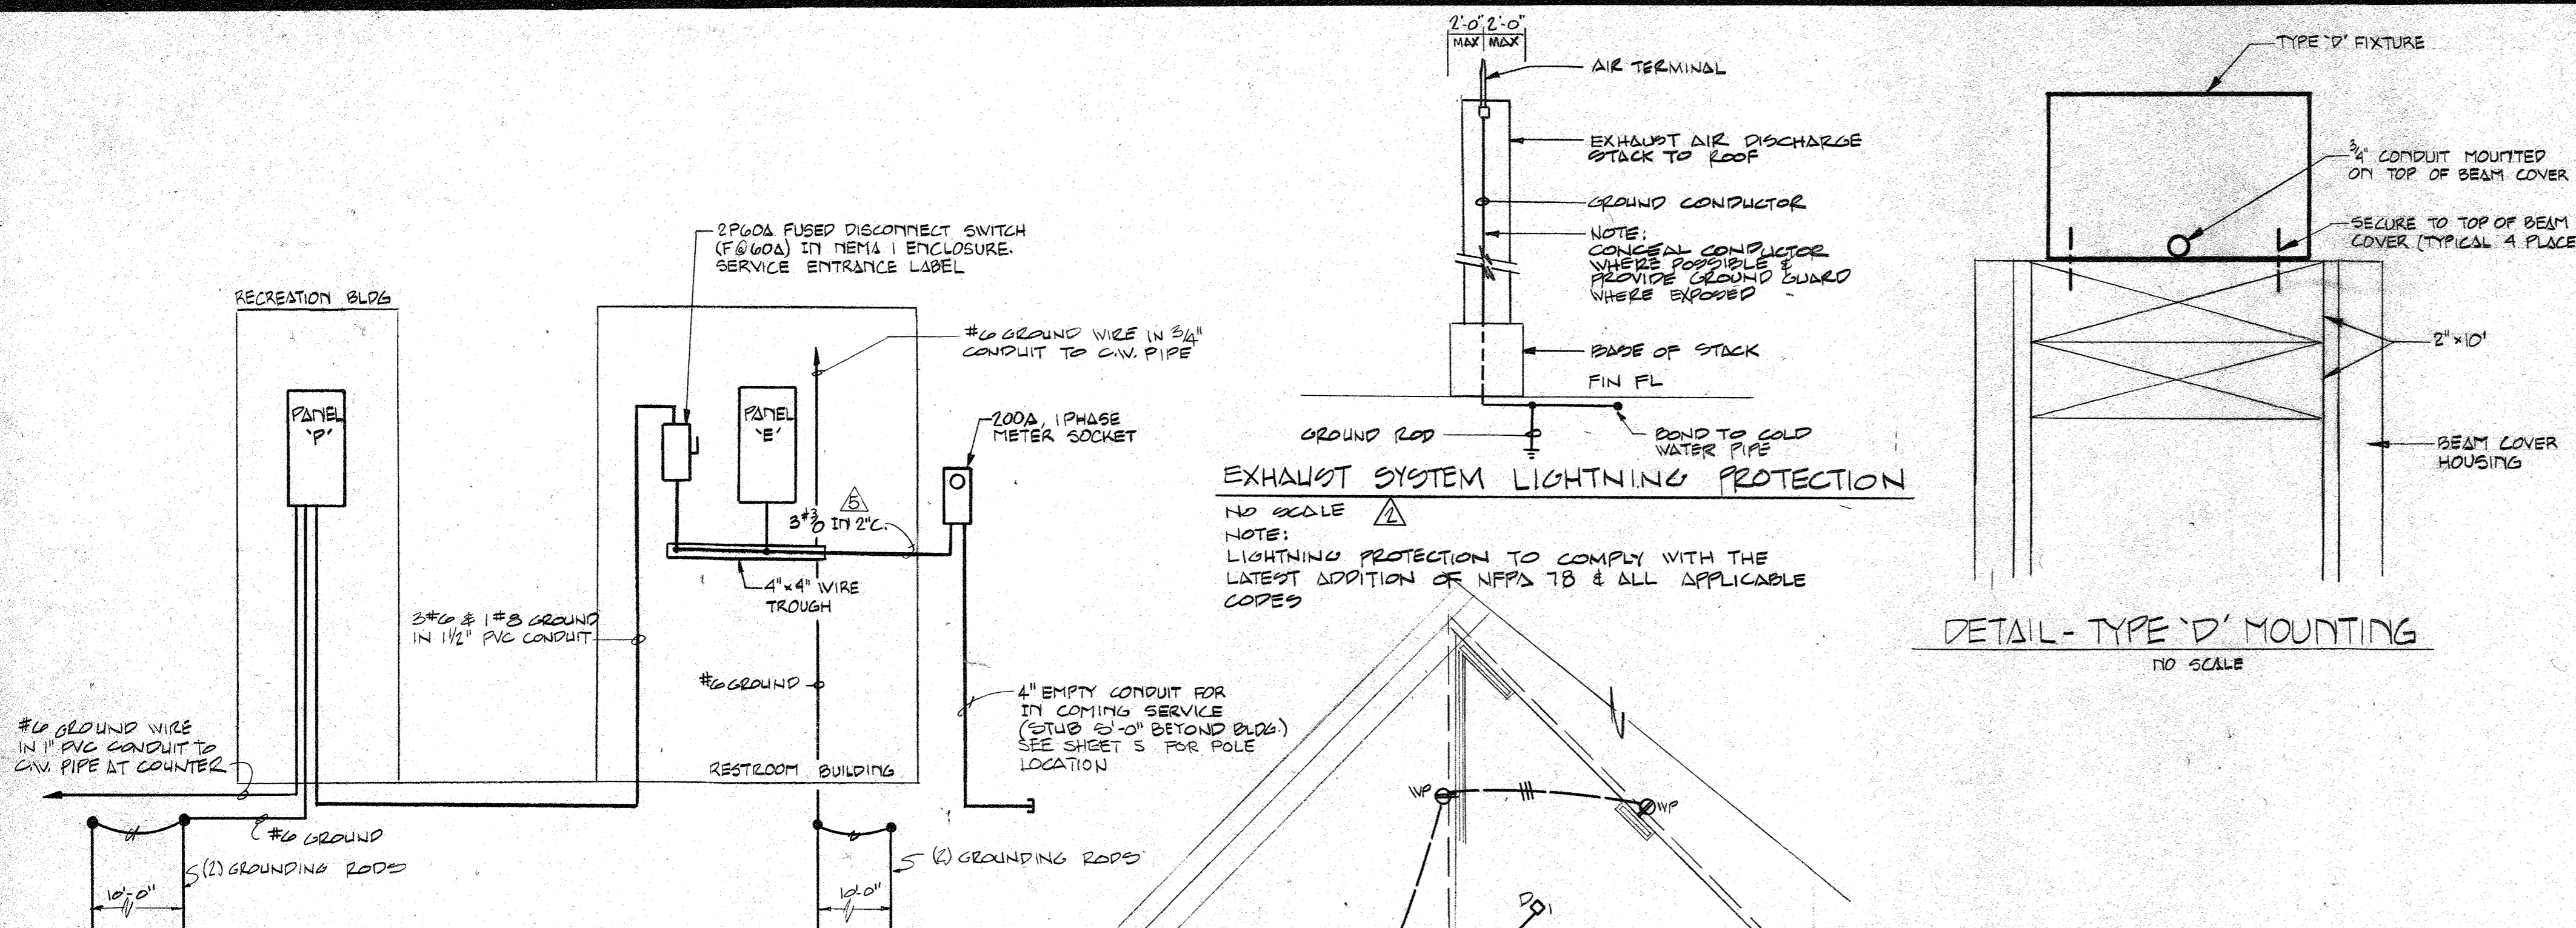 RECREATION BLDG
PANEL
'P'
2P60A FUSED DISCONNECT SWITCH
(F@60A) IN NEMA 1 ENCLOSURE.
SERVICE ENTRANCE LABEL
#6 GROUND WIRE IN 3/4"
CONDUIT TO C.W. PIPE
PANEL
'E'
200A, 1 PHASE
METER SOCKET
5
3#3/0 IN 2"C.
4"x4" WIRE
TROUGH
3#6 & 1#8 GROUND
IN 1 1/2" PVC CONDUIT
#6 GROUND
4" EMPTY CONDUIT FOR
IN COMING SERVICE
(STUB 5'-0" BEYOND BLDG.)
SEE SHEET 5 FOR POLE
LOCATION
RESTROOM BUILDING
#6 GROUND WIRE
IN 1" PVC CONDUIT TO
C.W. PIPE AT COUNTER
#6 GROUND
(2) GROUNDING RODS
10'-0"
(2) GROUNDING RODS
10'-0"
2'-0" 2'-0"
MAX MAX
AIR TERMINAL
EXHAUST AIR DISCHARGE
STACK TO ROOF
GROUND CONDUCTOR
NOTE:
CONCEAL CONDUCTOR
WHERE POSSIBLE &
PROVIDE GROUND GUARD
WHERE EXPOSED
BASE OF STACK
FIN FL
GROUND ROD
BOND TO COLD
WATER PIPE
EXHAUST SYSTEM LIGHTNING PROTECTION
NO SCALE
2
NOTE:
LIGHTNING PROTECTION TO COMPLY WITH THE
LATEST ADDITION OF NFPA 78 & ALL APPLICABLE
CODES
WP
WP
D
1
TYPE 'D' FIXTURE
3/4" CONDUIT MOUNTED
ON TOP OF BEAM COVER
SECURE TO TOP OF BEAM
COVER (TYPICAL 4 PLACE
2"x10'
BEAM COVER
HOUSING
DETAIL - TYPE 'D' MOUNTING
NO SCALE